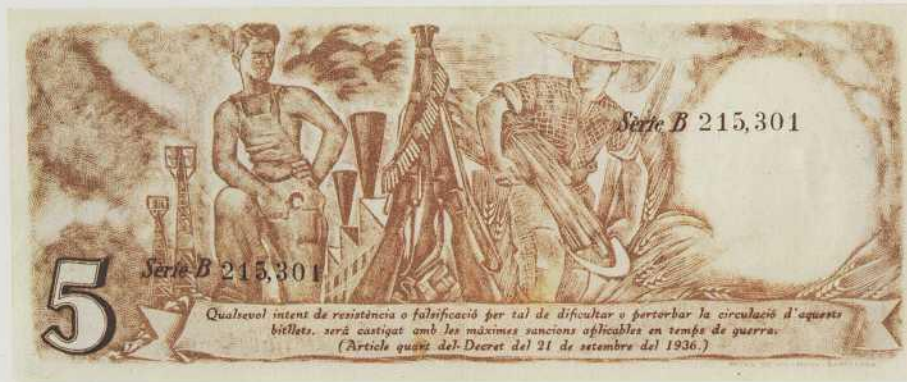 Sèrie B 215,301
Sèrie B 215,301
5
Qualsevol intent de resistència o falsificació per tal de dificultar o pertorbar la circulació d'aquests
bitllets, serà castigat amb les màximes sancions aplicables en temps de guerra.
(Article quart del Decret del 21 de setembre del 1936.)